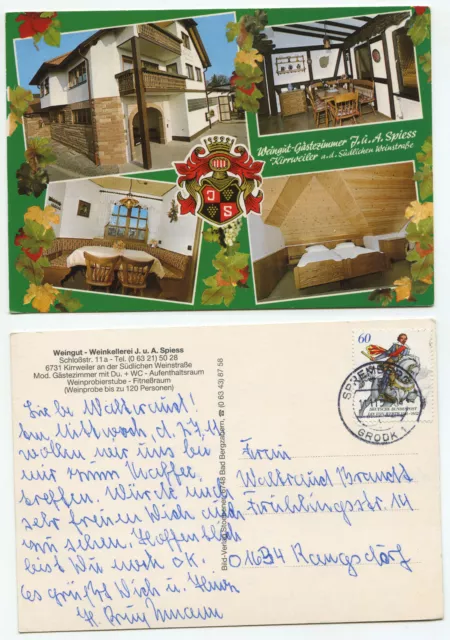 Weingut-Gästezimmer J. u. A. Spiess
Kirrweiler a. d. Südlichen Weinstraße
J S
Weingut - Weinkellerei J. u. A. Spiess
Schloßstr. 11a - Tel. (0 63 21) 50 28
6731 Kirrweiler an der Südlichen Weinstraße
Mod. Gästezimmer mit Du. + WC - Aufenthaltsraum
Weinprobierstube - Fitneßraum
(Weinprobe bis zu 120 Personen)
Liebe Waltraud!
Am Mittwoch, d.
wollen wir uns bei
mir zum Kaffee
treffen. Würde mich
sehr freuen Dich auch
zu sehen. Hoffentlich
bist Du noch ok.
es grüßt Dich u. Heinz
H.
Bild-Verlag 6748 Bad Bergzabern, ☎ (0 63 43) 87 58
60
DEUTSCHE BUNDESPOST
SPREMBERG
GRODK 1
Frau
Waltraud Brandt
Frühlingsstr. 11
01634 Rangsdorf